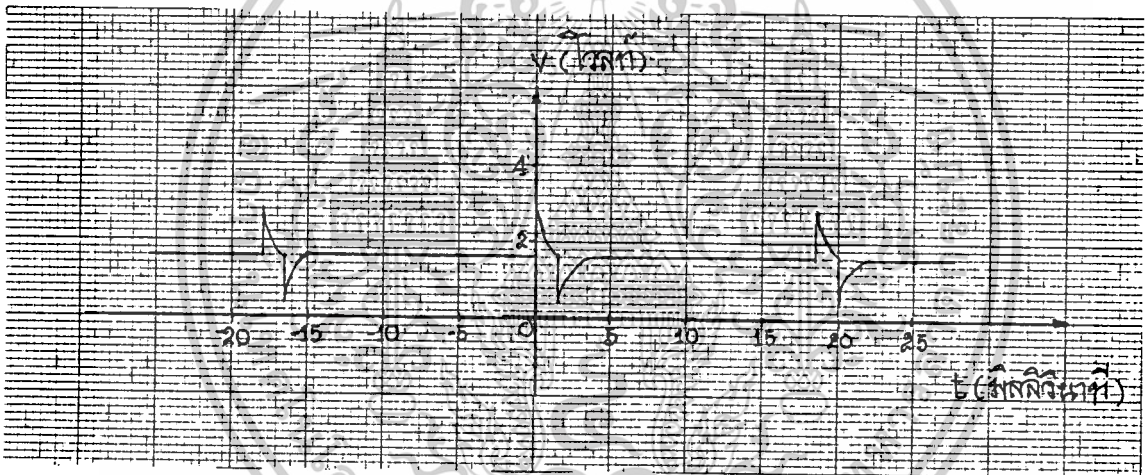 V (โวลท์)
4
2
-20 -15 -10 -5 0 5 10 15 20 25
t (มิลลิวินาที)